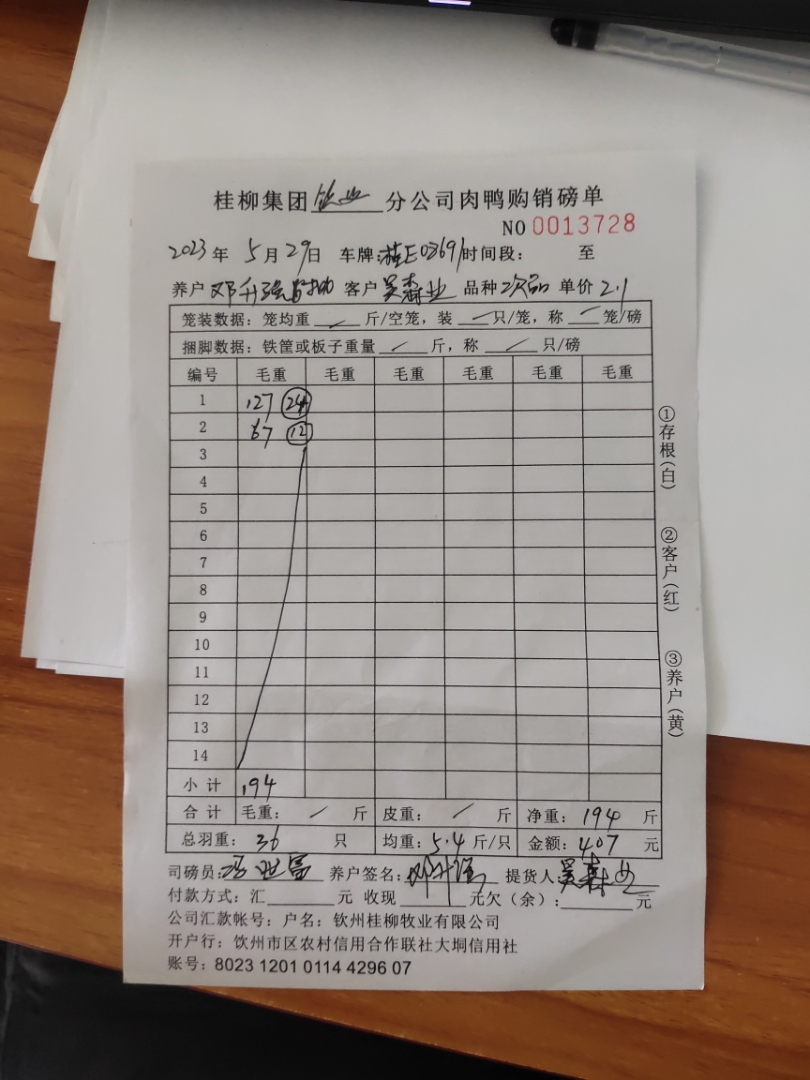 桂柳集团钦业分公司肉鸭购销磅单
NO 0013728
2023年 5月29日 车牌:桂E03691时间段: 至
养户 邓升强 客户 吴森业 品种 次品 单价 2.1
笼装数据：笼均重 / 斤/空笼，装 / 只/笼，称 / 笼/磅
捆脚数据：铁筐或板子重量 / 斤，称 / 只/磅
编号 毛重 毛重 毛重 毛重 毛重 毛重
1 127 24
2 67 12
3
4
5
6
7
8
9
10
11
12
13
14
小计 194
合计 毛重： / 斤 皮重： / 斤 净重：194 斤
总羽重：36 只 均重：5.4 斤/只 金额：407 元
司磅员： 养户签名：邓升强 提货人：吴森业
付款方式：汇 元 收现 元欠（余）： 元
公司汇款帐号：户名：钦州桂柳牧业有限公司
开户行：饮州市区农村信用合作联社大垌信用社
账号：8023 1201 0114 4296 07
①存根(白)
②客户(红)
③养户(黄)